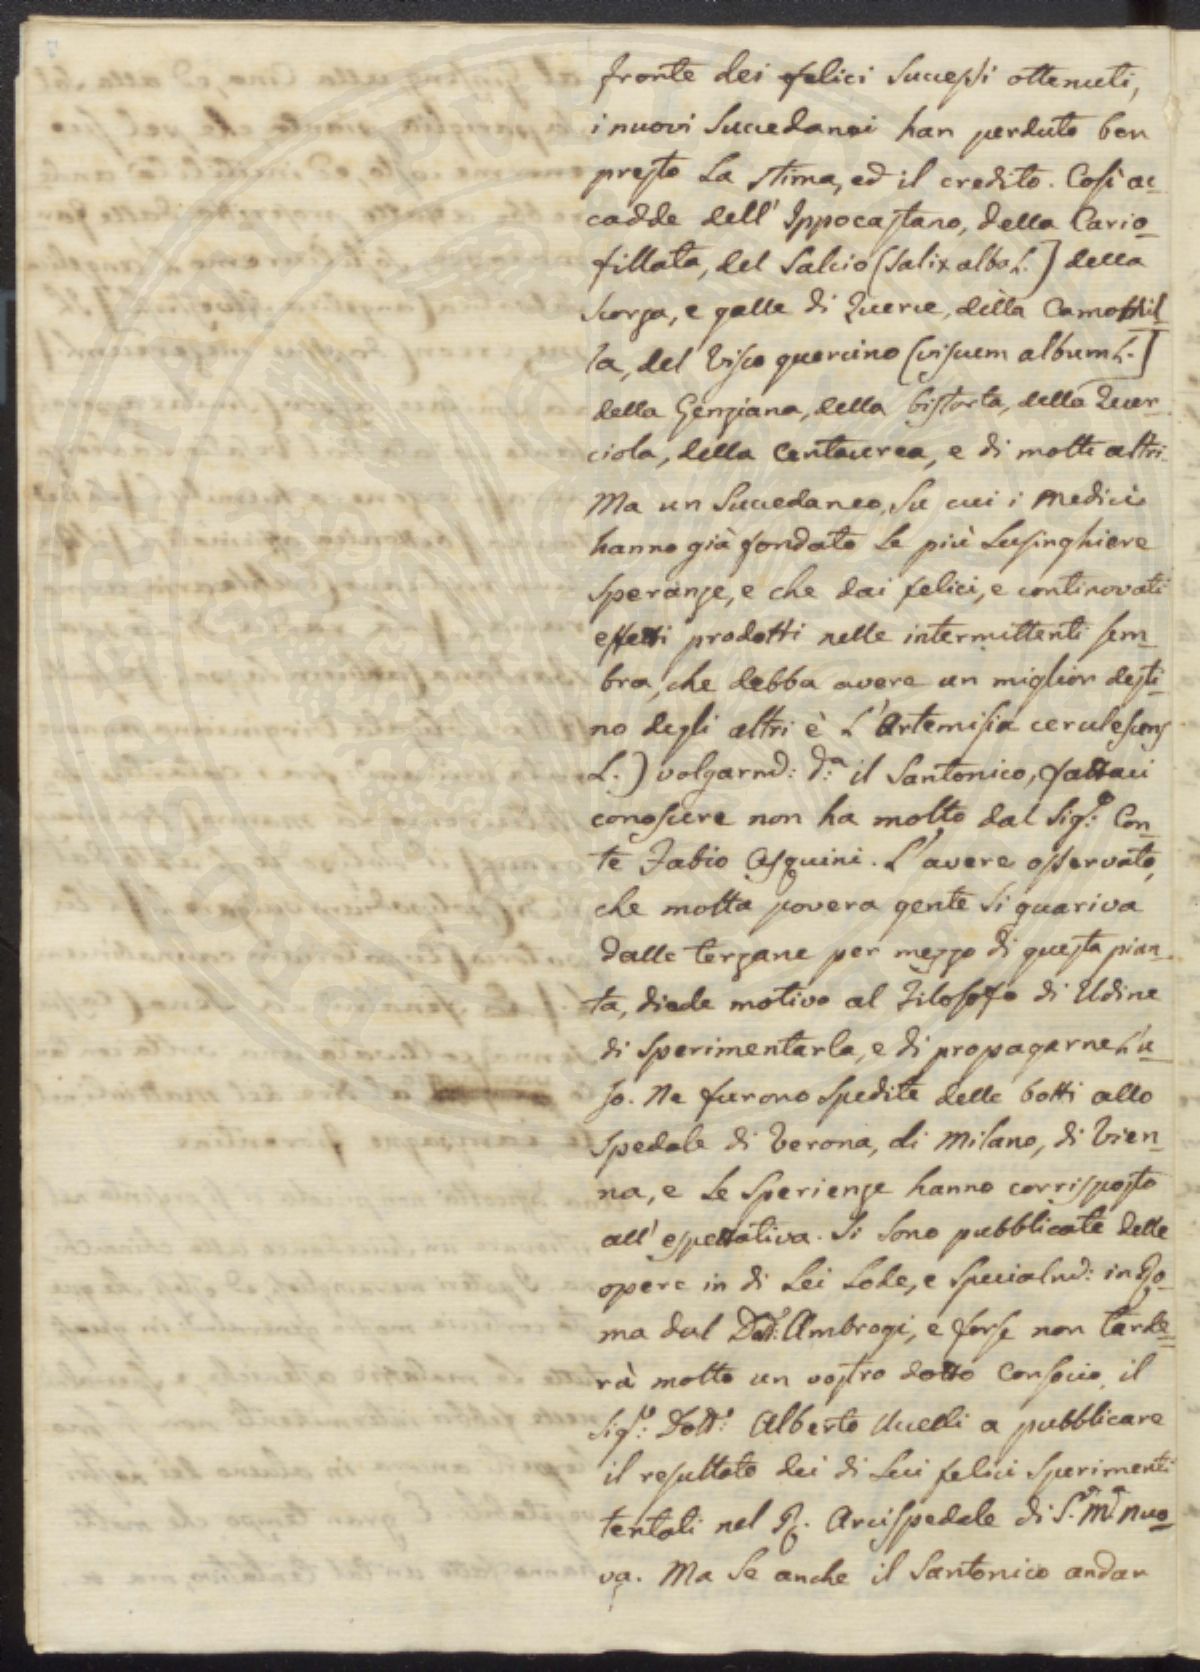 fronte dei felici successi ottenuti,
i nuovi succedanei han perduto ben
presto la stima, ed il credito. Così ac-
cadde dell' Ippocastano, della Cario-
fillata, del Salcio (salix alba L.) della
scorza, e galle di Querce, della Camomil-
la, del Visco quercino (viscum album L.)
della Genziana, della bistorta, della Quer-
ciola, della Centaurea, e di molti altri.
Ma un Succedaneo, su cui i Medici
hanno già fondato le più lusinghiere
speranze, e che dai felici, e continovati
effetti prodotti nelle intermittenti sem-
bra, che debba avere un miglior desti-
no degli altri è l'Artemisia cerulescens
L.) volgarmᵉ: dᵃ: il Santonico, fattaci
conoscere non ha molto dal Sigʳ: Con-
te Fabio Asquini. L'avere osservato,
che molta povera gente si guariva
dalle terzane per mezzo di questa pian-
ta, diede motivo al Filosofo di Udine
di sperimentarla, e di propagarne l'u-
so. Ne furono spedite delle botti allo
spedale di Verona, di Milano, di Vien-
na, e le sperienze hanno corrisposto
all' espettativa. Si sono pubblicate delle
opere in di lei lode, e specialmᵉ: in Ro-
ma dal Dotʳ: Ambrogi, e forse non tarde-
rà molto un vostro dotto Consocio, il
Sigʳ: Dottʳ: Alberto a pubblicare
il resultato dei di lui felici sperimenti
tentati nel R. Arcispedale di S. Mᵃ Nuo-
va. Ma se anche il Santonico andar